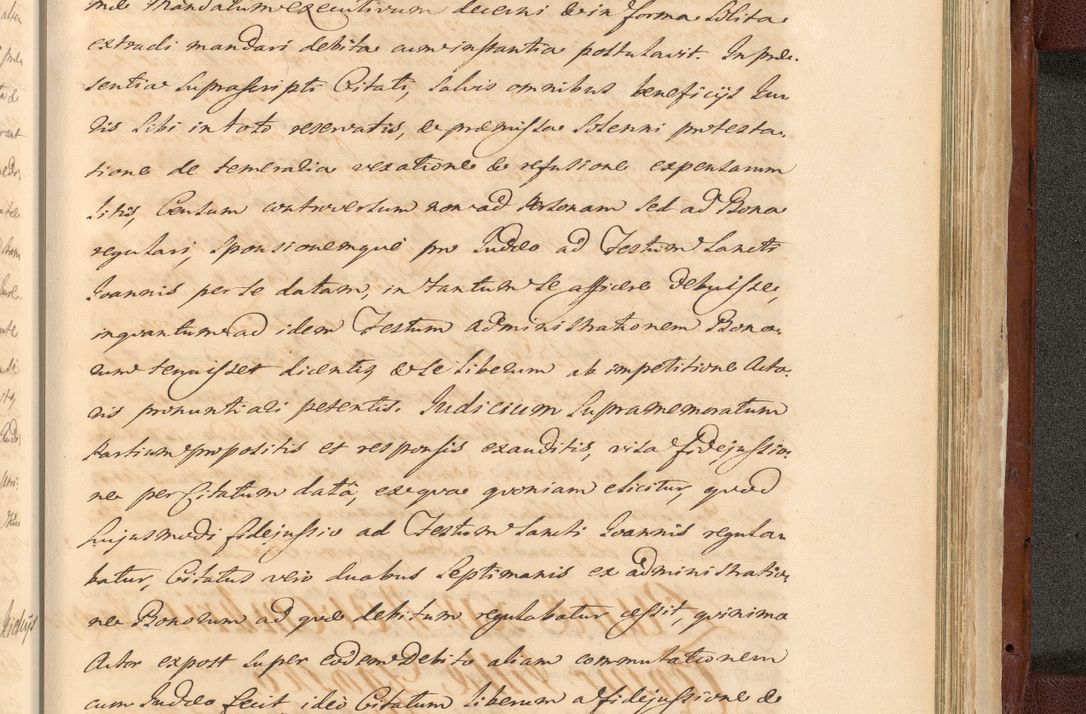 Mandatum executivum decerni & in forma solita
extradi mandari debita cum instantia postulavit. In præ-
sentia suprascripti Citati, salvis omnibus beneficijs Iu-
ris sibi in toto reservatis, & præmissa solenni protesta-
tione de temeraria vexatione & refusione expensarum
litis, Censum controversum non ad Personam sed ad Bona
regulari, sponsionemque pro Iudæo ad Festum Sancti
Ioannis per se datam, in tantum se afficere debuisse,
inquantum ad idem Festum administrationem Bono-
rum tenuisset dicentis, & se liberum ab impetitione Acto-
ris pronuntiari petentis. Iudicium supramemoratum
Partium propositis et responsis exauditis, visa fidejussio-
ne per Citatum datâ, ex qua quoniam elicitur, quod
hujusmodi fidejussio ad Festum Sancti Ioannis regula-
batur, Citatus vero duabus septimanis ex administratio-
ne Bonorum ad quæ debitum regulabatur cessit, quinimo
Actor expost super eodem debito aliam commutationem
cum Iudæo fecit ideo Citatum liberum a fidejussione &